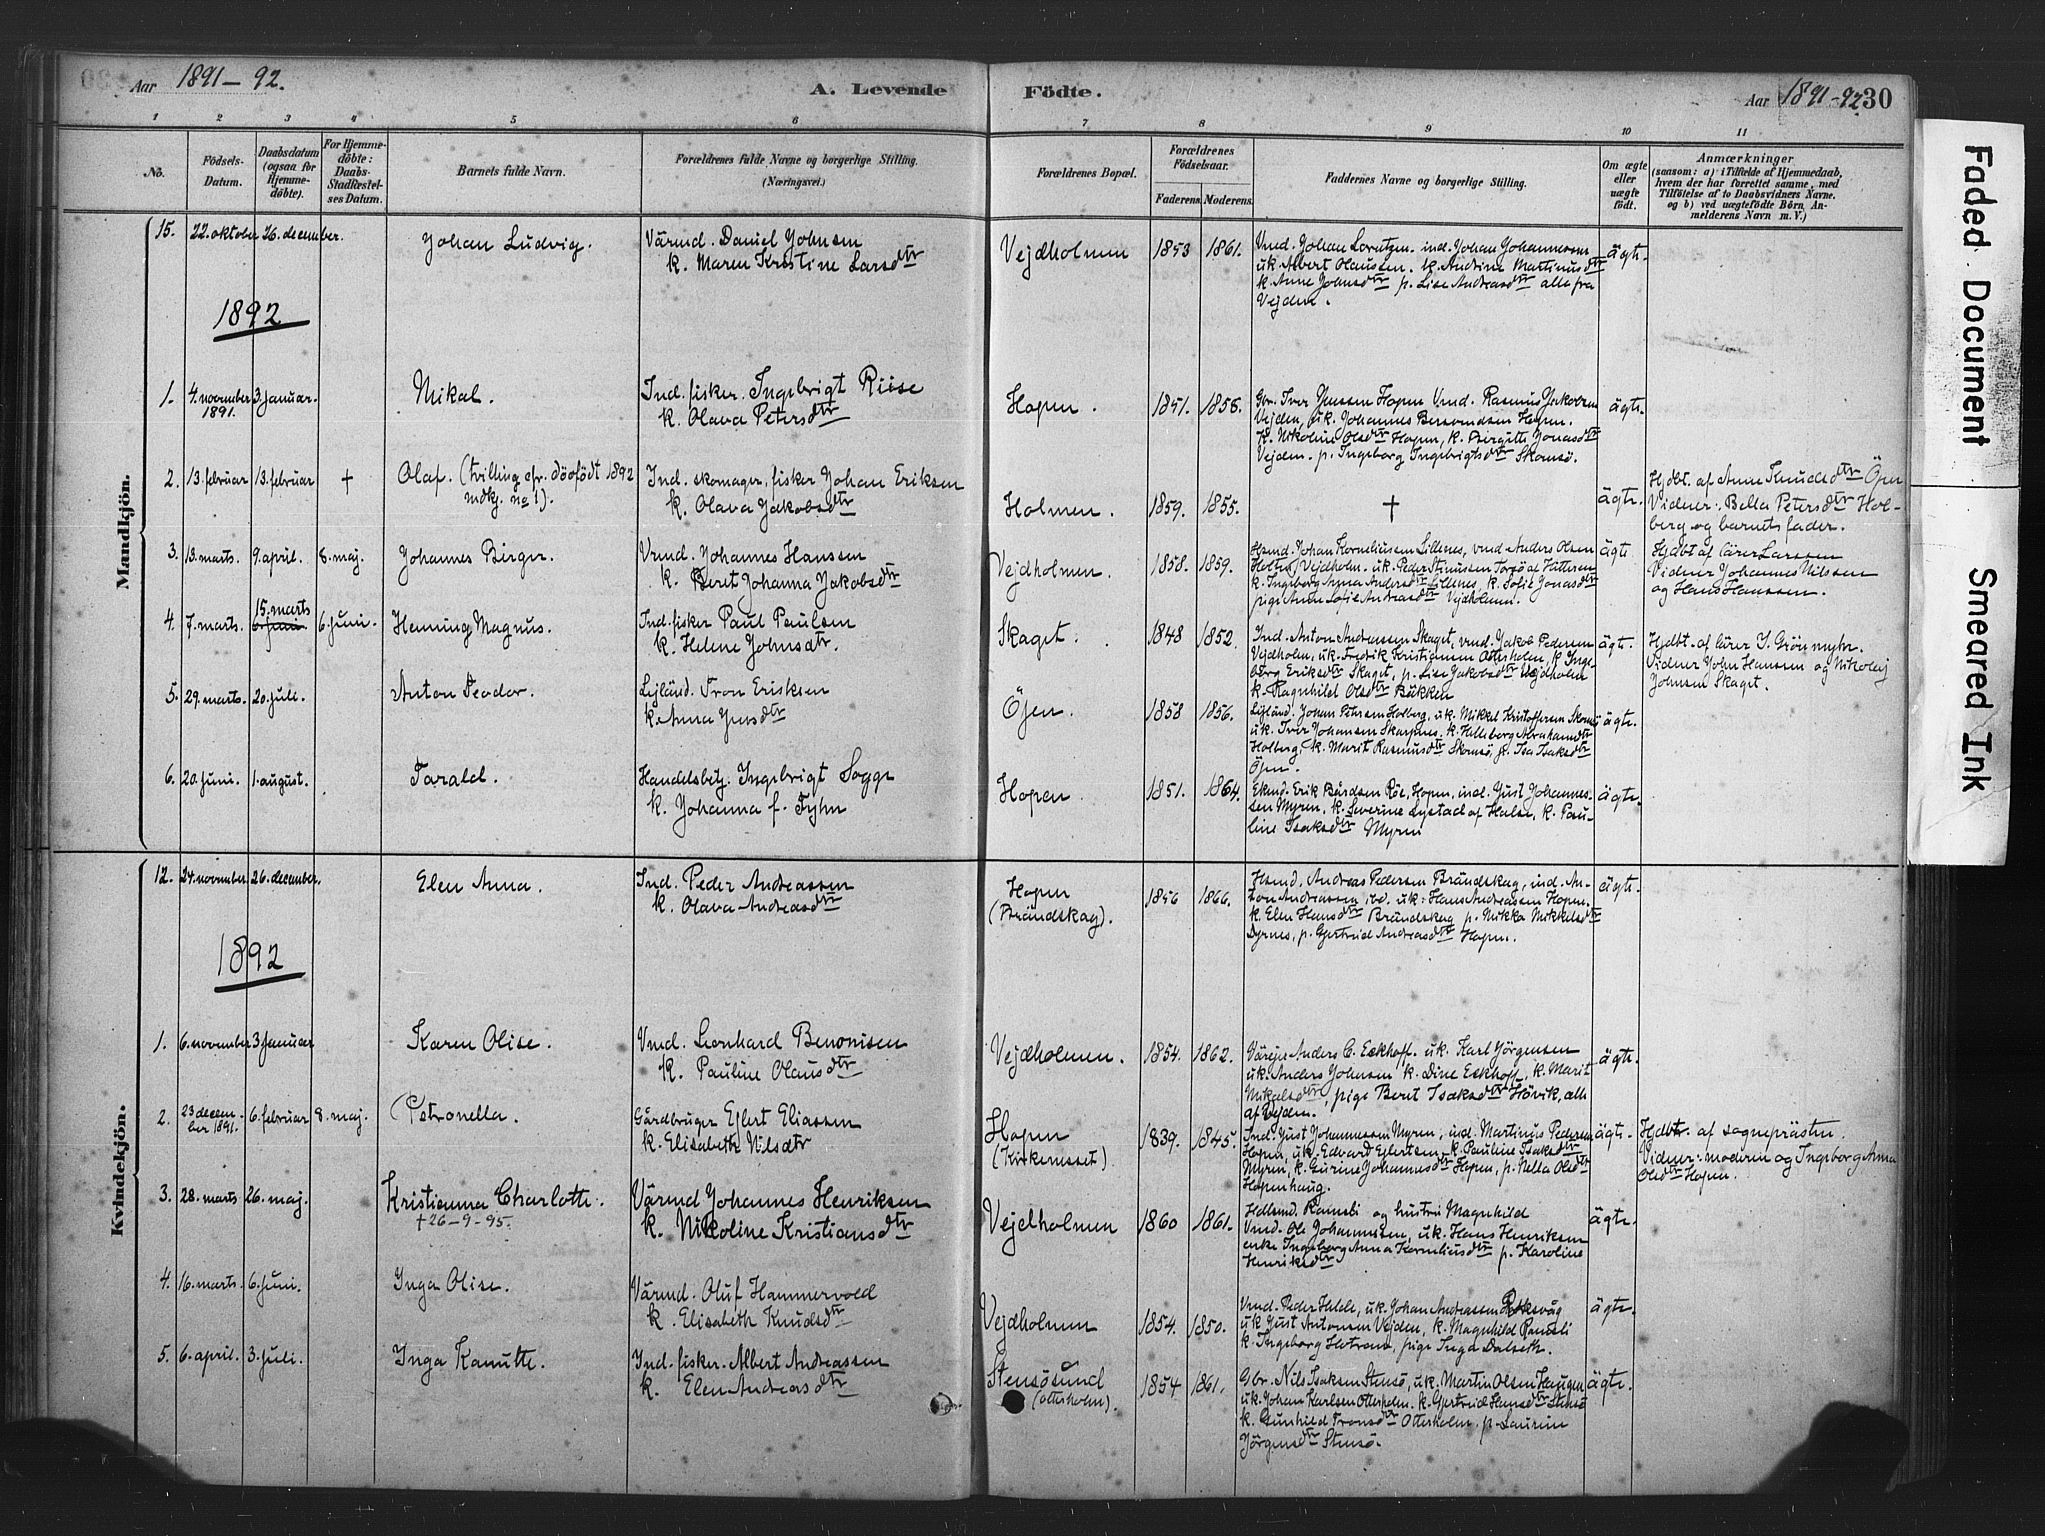 Aar 1891-92.
A. Levende
Födte.
Aar 1891-92
30
1 2 3 4 5 6 7 8 9 10 11
No.
Födsels-Datum.
Daabsdatum (ogsaa for Hjemme-döbte).
For Hjemme-döbte: Daabs-Stadfæstelses Datum.
Barnets fulde Navn.
Forældrenes fulde Navne og borgerlige Stilling. (Næringsvei.)
Forældrenes Bopæl.
Forældrenes Födselsaar.
Faderens. Moderens.
Faddernes Navne og borgerlige Stilling.
Om ægte eller uægte født.
Anmærkninger
(saasom: a) i Tilfælde af Hjemmedaab,
hvem der har forrettet samme, med
Tilföielse af to Daabsvidners Navne.
og b) ved uægtefödte Börn, An-
melderens Navn m. V.)
Mandkjön.
15. 22. oktober 26. december. Johan Ludvig. Värmd. Daniel Johnsen
k. Maren Kristine Larsdtr
Vejdholmen 1853 1861. Vmd. Johan Lorntzen. ind. Johan Johannesen
uk. Albert Olaussen. k. Andrine Martinusdtr
k. Anne Johnsdtr p. Lise Andreasdtr alle fra
Vejden.
ägte.
1892
1. 4. november 1891. 3. januar. Mikal. Ind. fisker. Ingebrigt Riise
k. Olava Petersdtr
Hopen. 1851. 1858. Gbr. Iver Jenssen Hopen Vmd. Rasmus Jakobsen
Vejden, uk. Johannes Hopen.
k. Nikoline Olsdtr Hopen, k. Birgitte Jonasdtr
Vejden. p. Ingeborg Ingebrigtsdtr Skomsö.
ägte.
2. 13. februar 13. februar + Olaf. (tvilling cfr. dödfödt 1892
mdkj. no 1). Ind. skomager, fisker Johan Eriksen
k. Olava Jakobsdtr
Holmen. 1859. 1855. + ägte. Hjdbt. af Anne Knudsdtr Öjen
Vidner: Bella Petersdtr Hol-
berg og barnets fader.
3. 13. marts. 9. april. 8. maj. Johannes Birger. Vmd. Johannes Hanssen
k. Berit Johanna Jakobsdtr
Vejdholmen. 1858. 1859. Hsmd. Johan Korneliussen Lillenes, vmd Anders Olsen
Holten Vejdholm. uk. Peder Stenussen af Hitteren
k. Ingeborg Anna Andersdtr Lillenes, k. Sofie Jonasdtr
pige Anne Sofie Andreasdtr Vejdholmen.
ägte. Hjdbt af lärer Larssen
Vidner Johannes Nilssen
og Hans Hanssen.
4. 7. marts. 15. marts 6. juni 6. juni. Henning Magnus. Ind. fisker Paul Paulsen
k. Helene Johnsdtr.
Skaget. 1848 1852. Ind. Anton Andreassen Skaget, vmd. Jakob Pedersen
Vejdholm, uk. Fredrik Kristiansen Otterholm, p Inge-
borg Eriksdtr Skaget, p. Lise Jakobsdtr Vejdholm
k. Ragnhild Olsdtr Bakken
ägte. Hjdbt. af lärer I. Grönmyhr.
Vidner John Hansen og Nikolaj
Johnsen Skaget.
5. 29. marts. 20. juli. Anton Teodor. Lejländ. Tron Eriksen
k. Anna Jensdtr
Öjen. 1858 1856. Lejländ. Johan Petersen Holberg, uk. Mikkel Kristoffersen Skomsö
uk. Iver Johansen Skarpnes, k. Hilleborg Abrahamsdtr
Holberg, k. Marit Rasmusdtr Skomsö, p. Isaksdtr
Öjen.
ägte.
6. 20. juni. 1. august. Tarald. Handelsbetj. Ingebrigt Sogge
k. Johanna f. Tyhn
Hopen. 1851. 1864. Ekmd. Erik Bårdsen Röe, Hopen, ind. Just Johannes-
sen Myren, k. Severine Lystad af Halse, k. Pau-
line Isaksdtr Myren
ägte.
Kvindekjön.
12. 24. november 26. december. Elen Anna. Ind. Peder Andreassen
k. Olava Andreasdtr
Hopen
(Brändskag). 1856 1866. Hsmd. Andreas Pedersen Brändskag, ind. An-
ton Andreassen ibd. uk. Hans Andreassen Hopen.
k. Elen Hansdtr Brändskag p. Nikka Mikkelsdtr
Dyrnes, p. Gjertrud Andreasdtr Hopen.
ägte.
1892
1. 6. november 3. januar Karen Olise. Vmd. Leonhard Benonisen
k. Pauline Olausdtr
Vejdholmen. 1854. 1862. Värejer Anders C. Eckhoff. uk. Karl Jörgensen
uk. Anders Johnsen k. Dine Eckhoff, k. Marit
Mikalsdtr, pige Berit Isaksdtr Hövik, alle
af Vejden.
ägte.
2. 23 decem-
ber 1891. 6. februar 8. maj. Petronella. Gårdbruger Eflert Eliassen
k. Elisabeth Nilsdtr
Hopen
(Kirkenesset) 1839. 1845. Ind. Just Johannessen Myren, ind. Martinus Pedersen
Hopen, uk. Edvard Eflertsen, k. Pauline Isaksdtr
Myren, k. Gurine Johannesdtr Hopen, p. Nella Olsdtr
Hopenhaug.
ägte. Hjdbt. af sogneprästen.
Vidner: moderen og Ingeborg Anna
Olsdtr Hopen.
3. 28. marts 26. maj. Kristianna Charlotte.
+ 26-9-95.
Värmd Johannes Henriksen
k. Nikoline Kristiansdtr
Vejdholmen 1860 1861. Hdlsmd. Ramsli og hustru Magnhild
Vmd. Ole Johannessen, uk. Hans Henriksen
enke Ingeborg Anna Korneliusdtr p. Karoline
Henriksdtr
ägte.
4. 16. marts. 6. juni. Inga Olise. Värmd. Oluf Hammervold
k. Elisabeth Knudsdtr
Vejdholmen 1854. 1850. Vmd. Peder Helde, uk. Johan Andreassen Roksvåg
uk Just Antonsen Vejden, k. Magnhild Ramsli
k. Ingeborg Hotrand, pige Inga Dalseth.
ägte.
5. 6. april. 3. juli. Inga Kanutte. Ind. fisker. Albert Andreassen
k. Elen Andreasdtr
Stensösund
(Otterholm). 1854 1861. Gbr. Nils Isaksen Stensö, uk. Martin Olsen Haugen
uk. Johan Karlsen Otterholm. k. Gjertrud Hansdtr Stensö
k. Gunhild Tronsdtr Otterholm, p. Laurine
Jörgensdtr Stensö.
ägte.
Faded Document
Smeared Ink